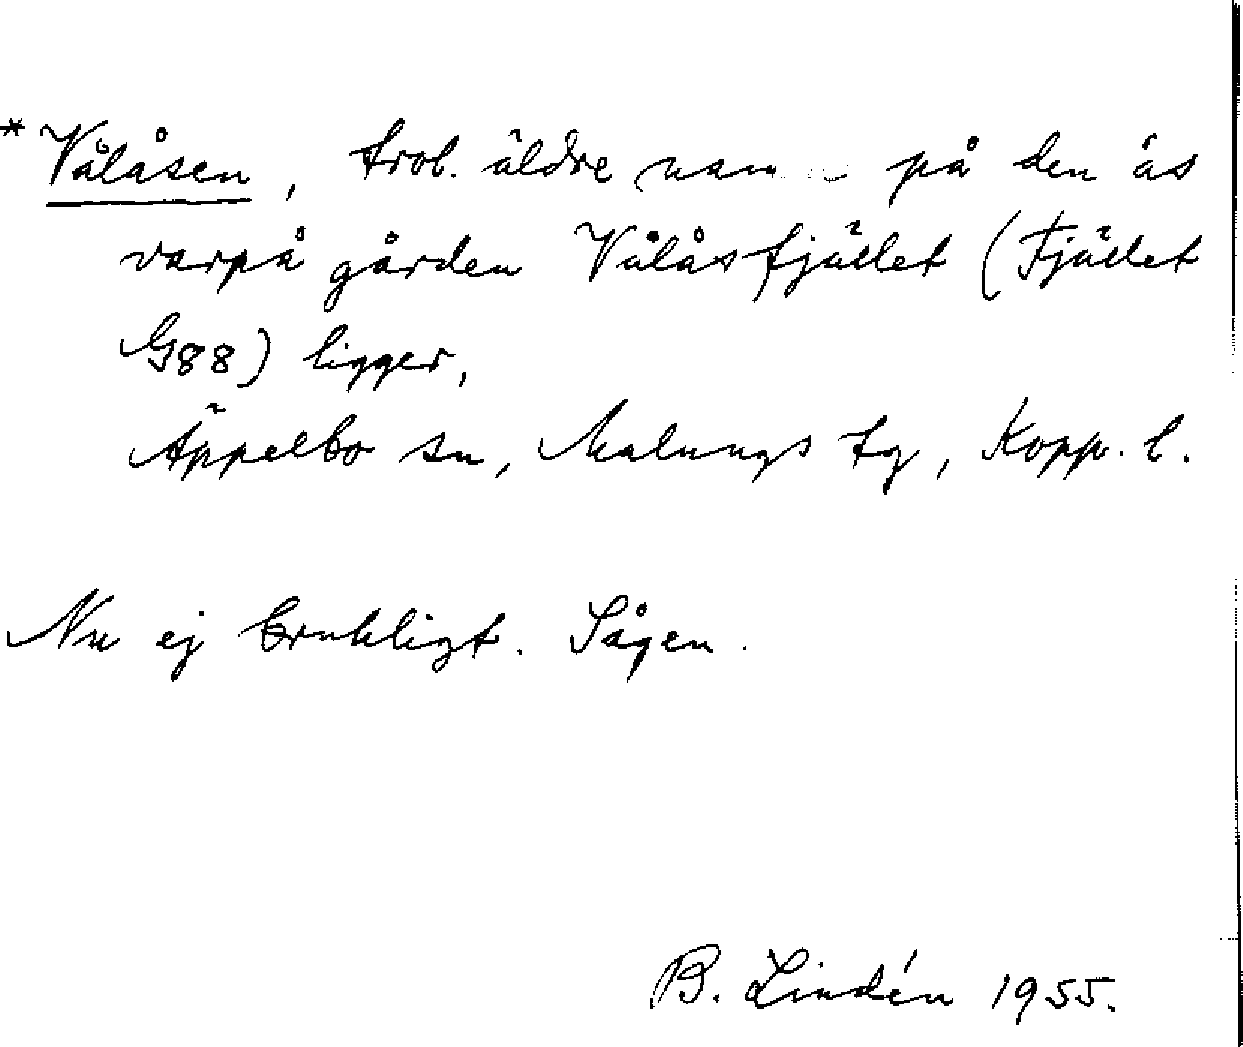 *Vålåsen, trol. äldre namn på den ås
varpå gården Vålåsfjället (Fjället
G88) ligger,
Äppelbo sn, Malungs tg, Kopp. l.
Nu ej brukligt. Sågen.
B. Lindén 1955.